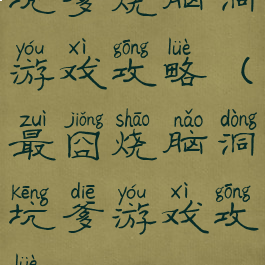 坑爹烧脑洞
yóu xì gōng lüè
游戏攻略（
zuì jiǒng shāo nǎo dòng
最囧烧脑洞
kēng diē yóu xì gōng
坑爹游戏攻
lüè